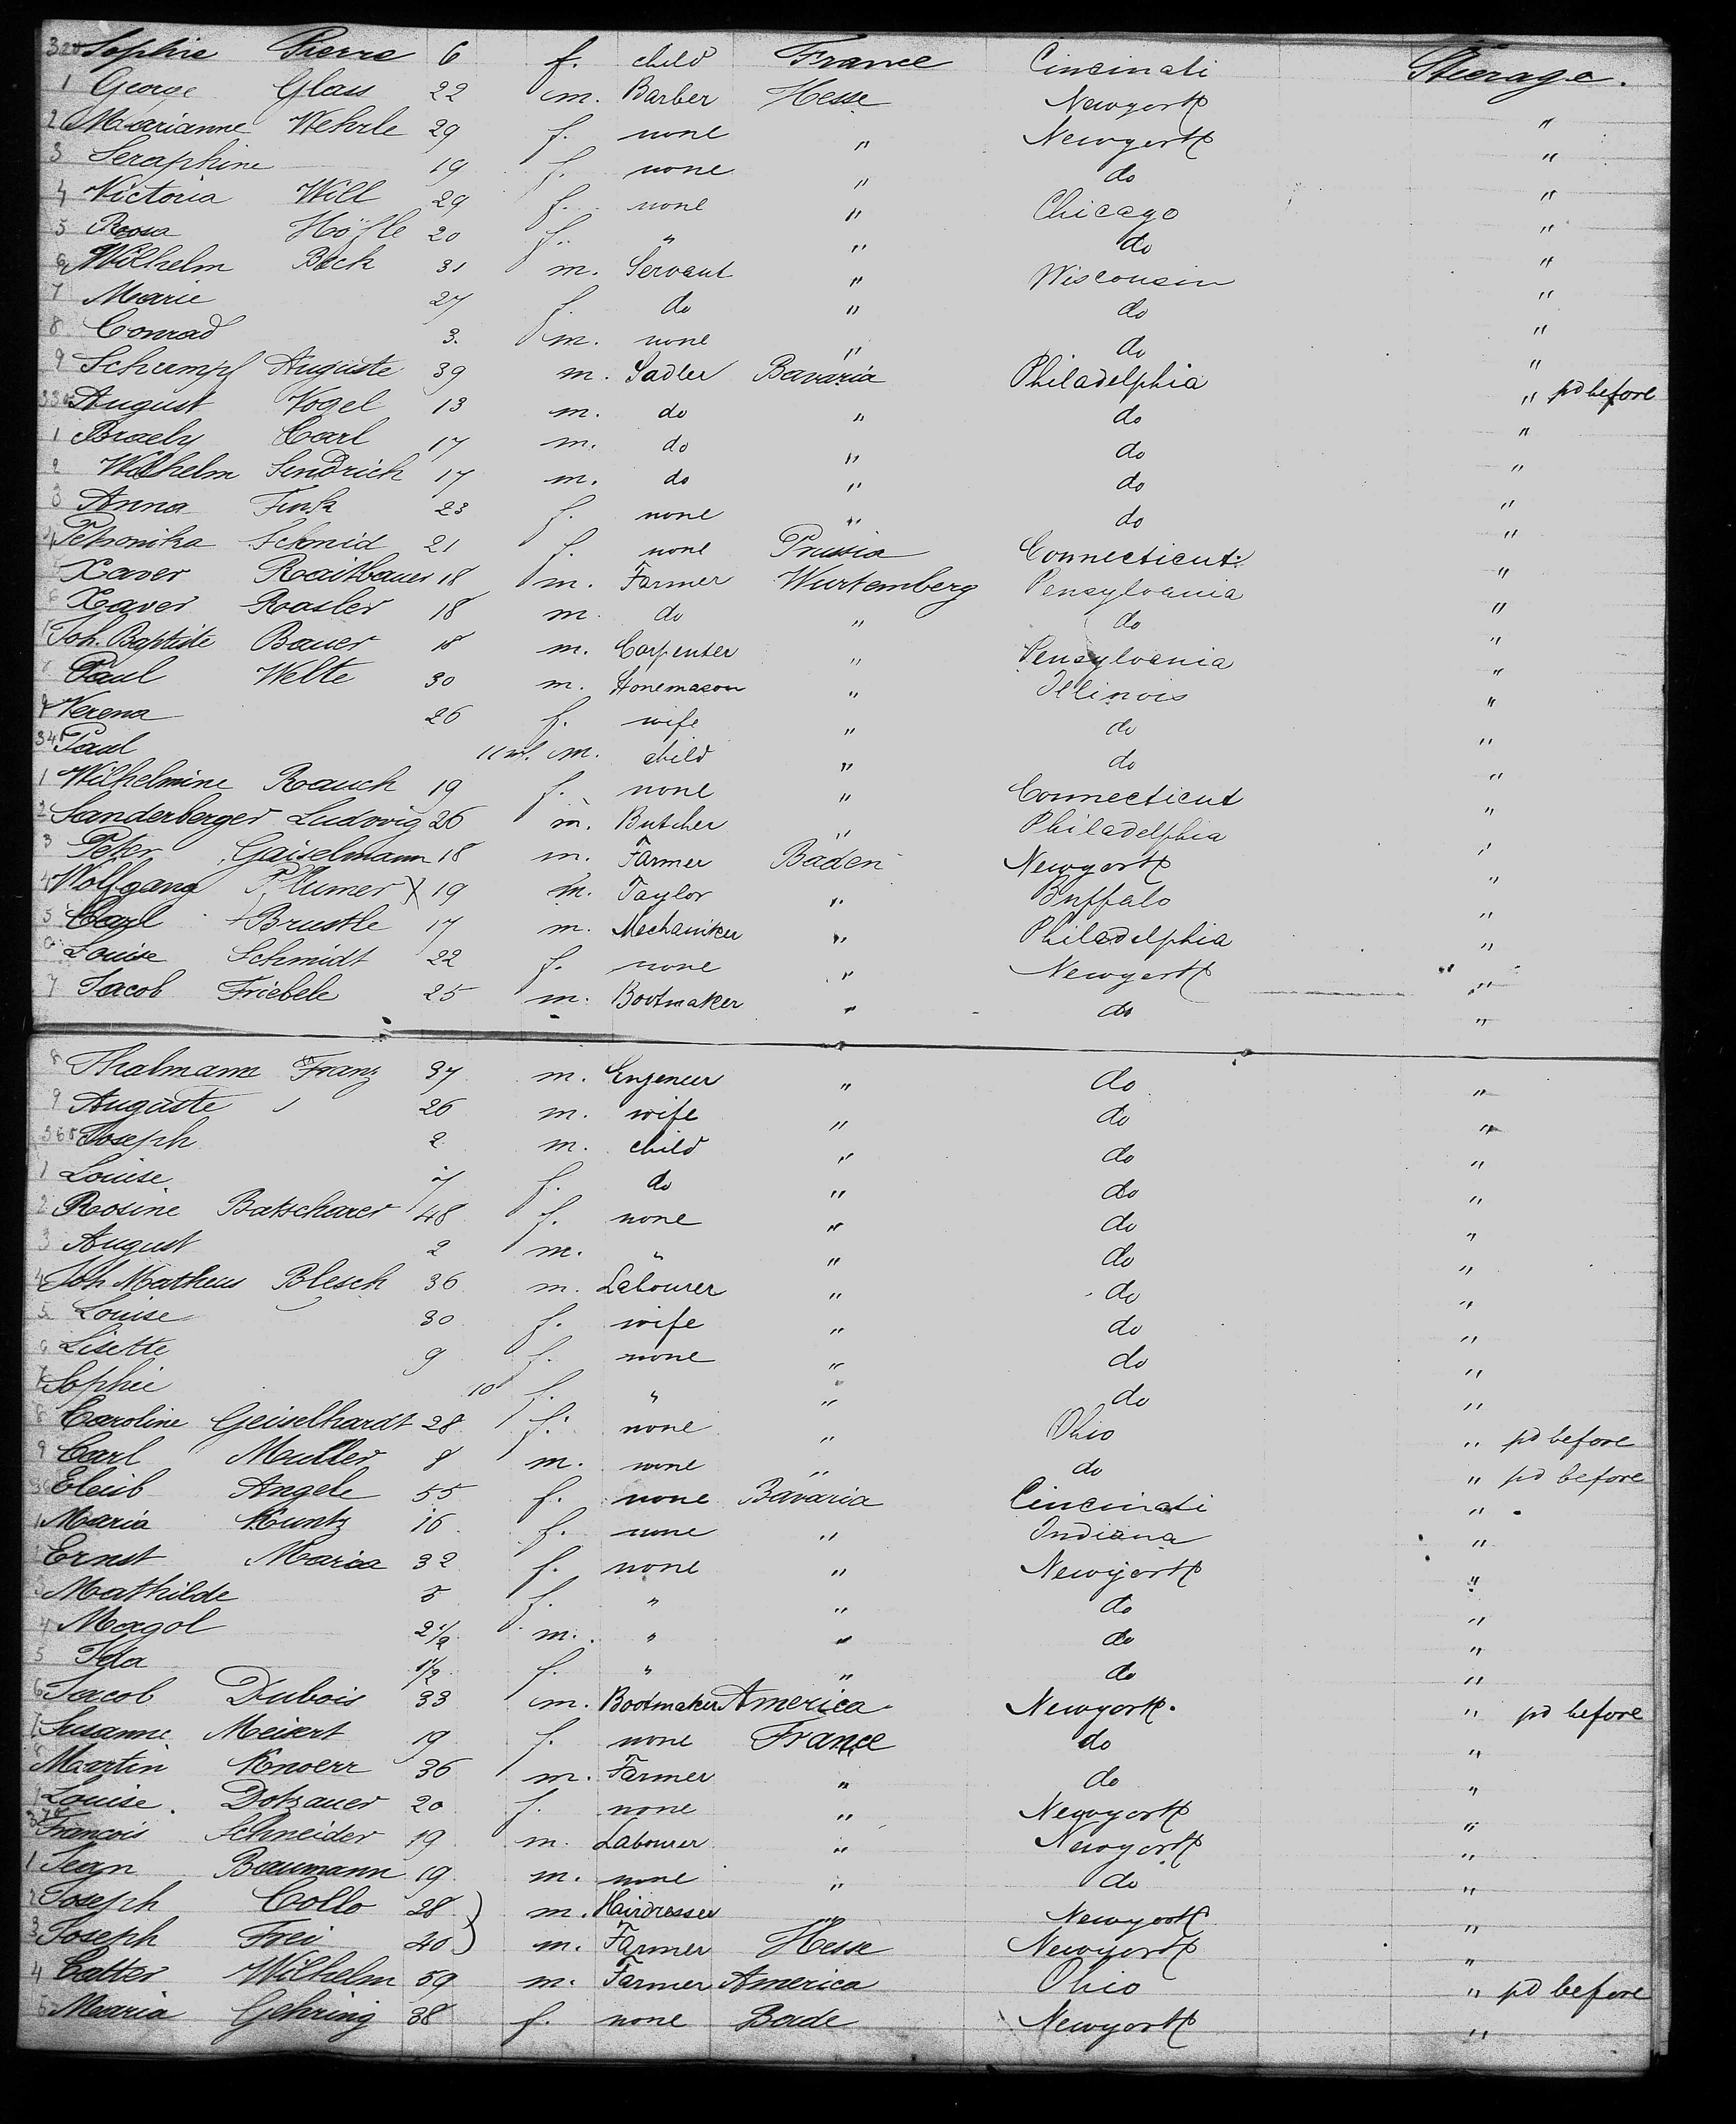 320 Sophie Pierre 6 f. child France Cincinati Steerage.
1 George Glass 22 m. Barber Hesse Newyork "
2 Marianne Wehrle 29 f. none " Newyork "
3 Seraphine 19 f. none " do "
4 Victoria Will 29 f. none " Chicago "
5 Rosa Höfle 20 f. " " do "
6 Wilhelm Beck 31 m. Servant " Wisconsin "
7 Marie 27 f. do " do "
8 Conrad 3. m. none " do "
9 Schumpf Auguste 39 m. Sadler Bavaria Philadelphia " pd before
330 August Vogel 13 m. do " do "
1 Braely Carl 17 m. do " do "
2 Wilhelm Sendrich 17 m. do " do "
3 Anna Fink 23 f. none " do "
4 Petronika Schmid 21 f. none Prussia Connecticut. "
Xaver Raithbauer 18 m. Farmer Wurtemberg Pensylvania "
6 Xaver Rasler 18 m. do " do "
7 Joh. Baptiste Bauer 18 m. Carpenter " Pensylvania "
8 Paul Welte 30 m. Stonemason " Illinois "
9 Verena 26 f. wife " do "
340 Paul 11 m. child " do "
1 Wilhelmine Rauch 19 f. none " Connecticut "
2 Sanderberger Ludwig 26 m. Butcher " Philadelphia "
3 Peter Gaiselmann 18 m. Farmer Baden Newyork "
4 Wolfgang Plumer X 19 m. Taylor " Buffalo "
5 Carl Brustle 17 m. Mechaniker " Philadelphia "
6 Louise Schmidt 22 f. none " Newyork "
7 Jacob Friebele 25 m. Bootmaker " do "
8 Thalmann Franz 37 m. Engeneer " do "
9 Auguste 26 m. wife " do "
Joseph 2 m. child " do "
1 Louise f. do " do "
2 Rosine Batscharer 48 f. none " do "
3 August 2 m. " " do "
4 Joh Matheus Blesch 36 m. Labourer " do "
5 Louise 30 f. wife " do "
6 Lisette 9 f. none " do "
7 Sophie 10 f. " " do "
8 Caroline Geiselhardt 28 f. none " Ohio " pd before
9 Carl Muller 8 m. none " do " pd before
Angele 55 f. none Bavaria Cincinati "
1 Maria Kuntz 16 f. none " Indiana "
Ernst Maria 32 f. none " Newyork "
3 Mathilde 5 f. " " do "
4 Magol 2 1/2 m. " " do "
5 Ida 1/2 f. " " do "
6 Jacob Dubois 33 m. Bootmaker America Newyork. " pd before
7 Susanne Meixert 19 f. none France do "
8 Martin Knoerr 36 m. Farmer " do "
9 Louise. Dotzauer 20 f. none " Newyork "
370 Francois Schneider 19 m. Labourer " Newyork "
1 Jean Baumann 19 m. none " do "
2 Joseph Collo 28 m. Hairdresser " Newyork "
3 Joseph Frei 40 m. Farmer Hesse Newyork "
4 Catter Wilhelm 59 m. Farmer America Ohio " pd before
5 Maria Gehring 38 f. none Bade Newyork "